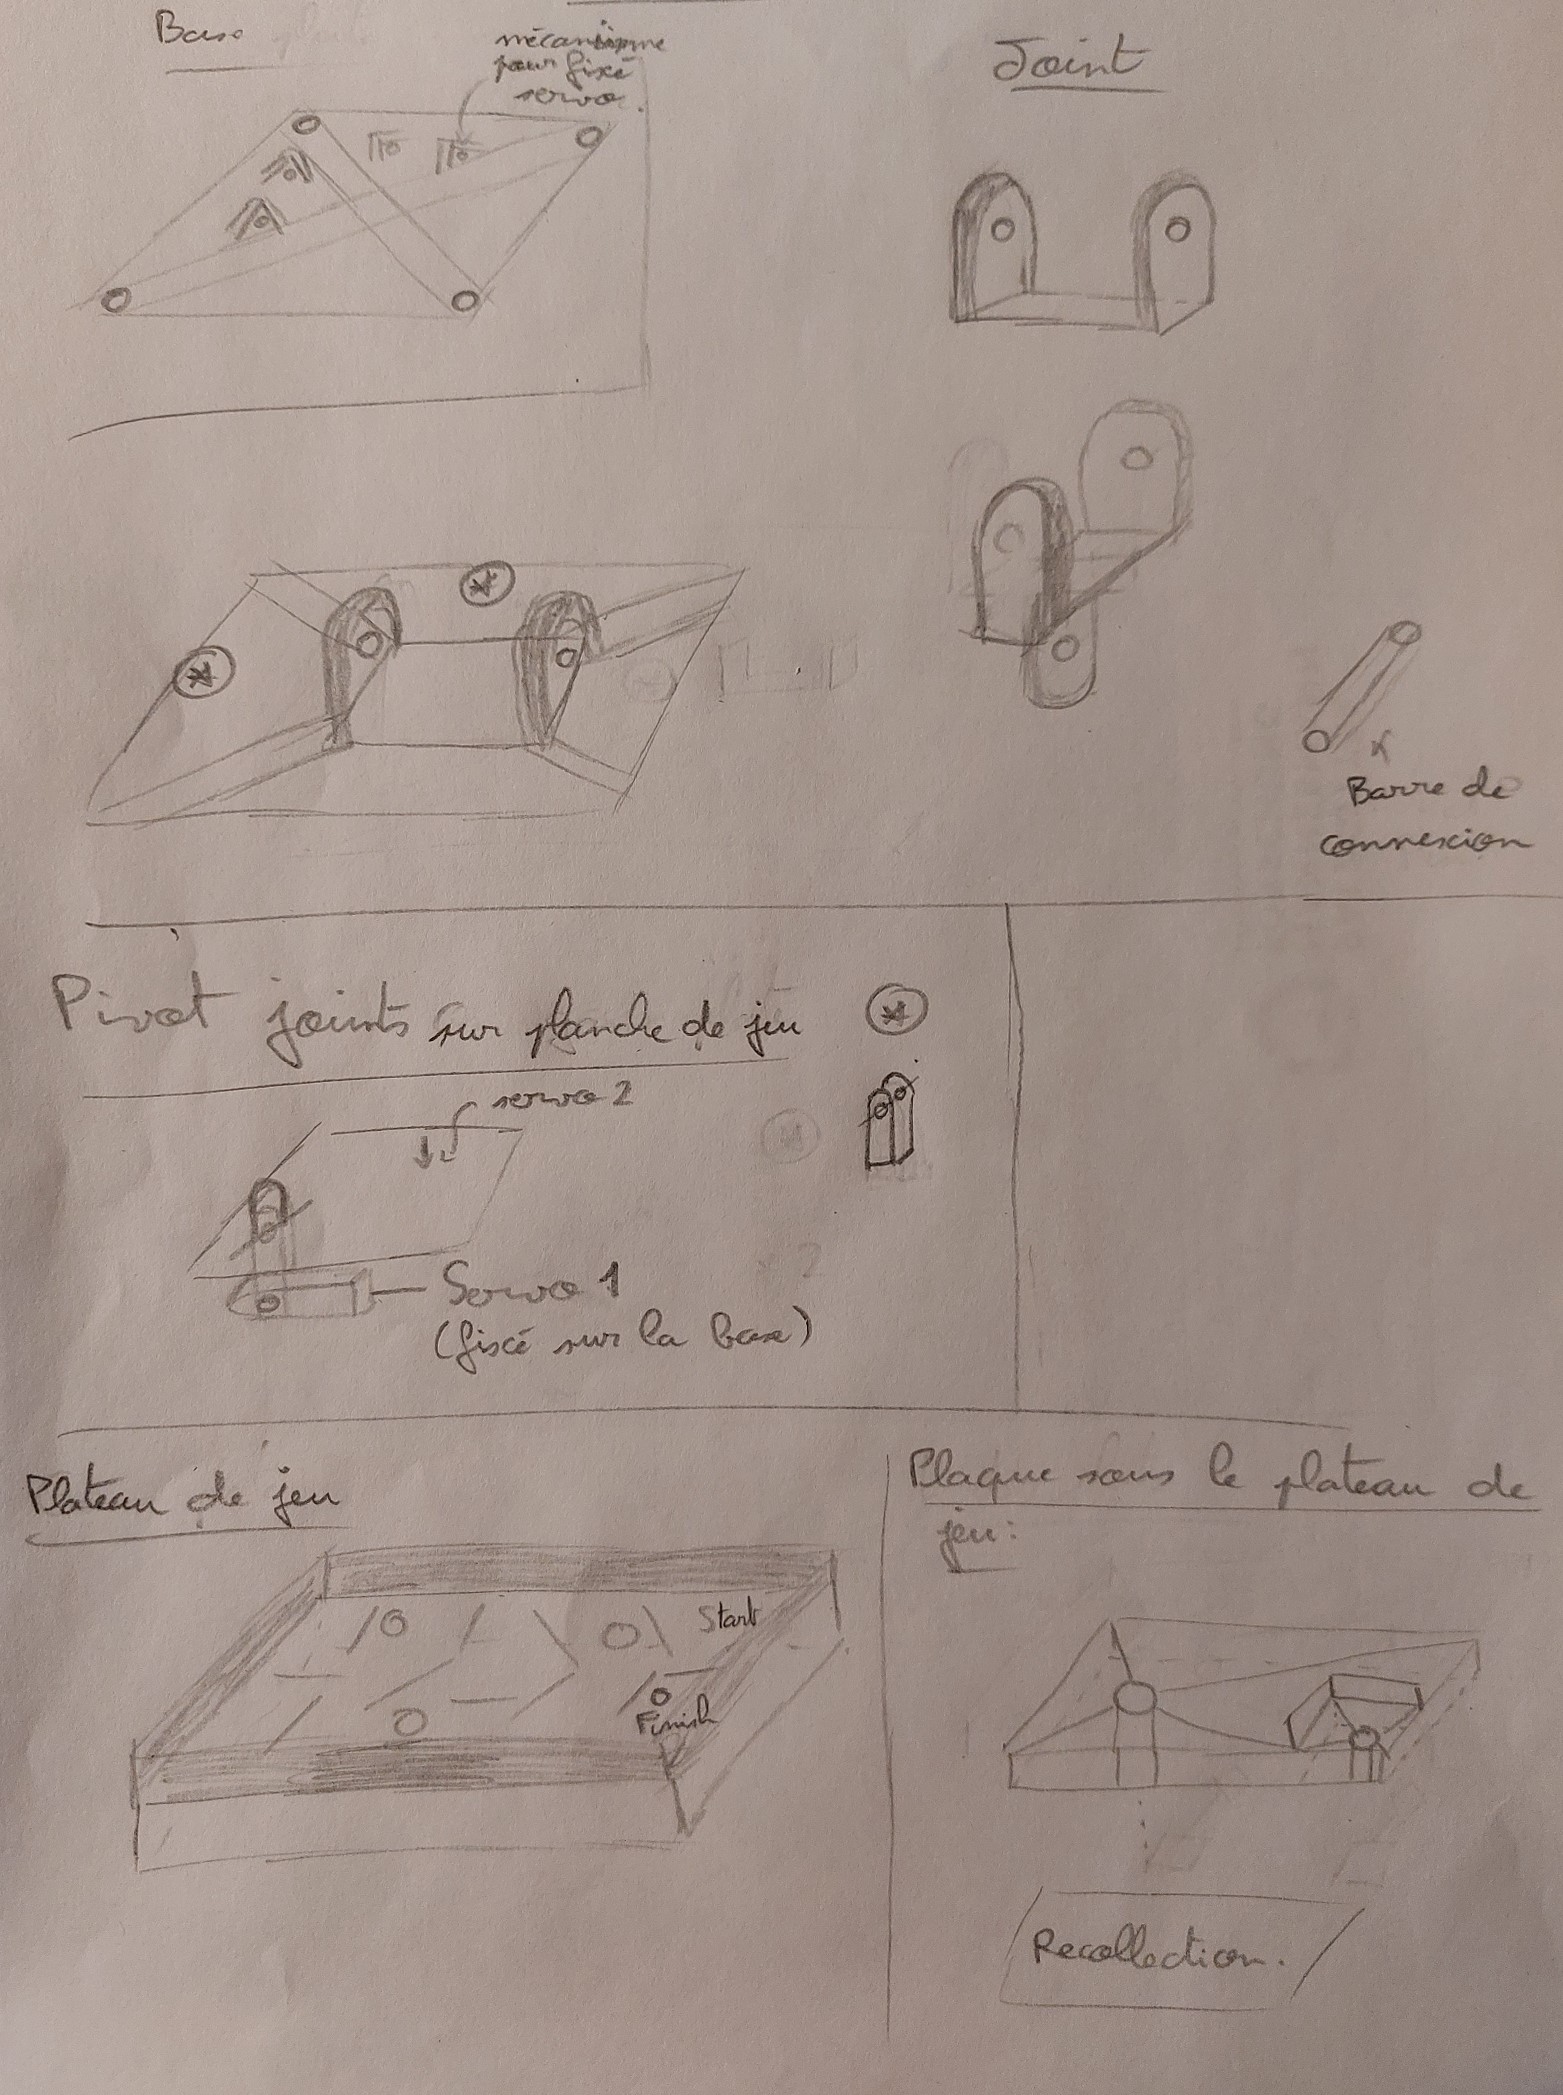 Base
mécanisme
pour fixé
servo.
Joint
Barre de
connexion
Pivot joints sur planche de jeu
servo 2
Servo 1
(fixé sur la base)
Plateau de jeu
Start
Finish
Plaque sous le plateau de
jeu:
Recollection.